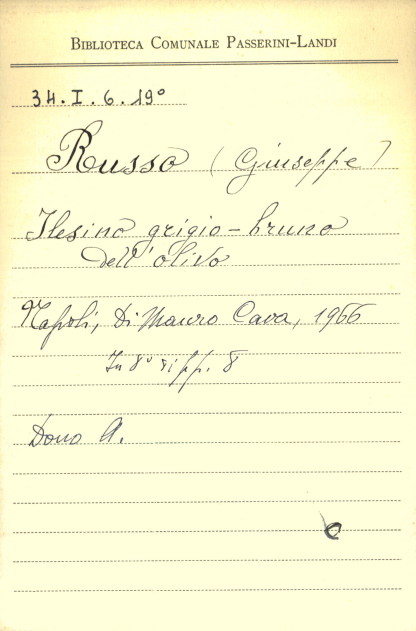 BIBLIOTECA COMUNALE PASSERINI-LANDI
34.I.6.19°
Russo (Giuseppe)
Ilesino grigio-bruno
dell'olivo
Napoli, Di Mauro Cava, 1966
In 8° di pp. 8
Dono A.